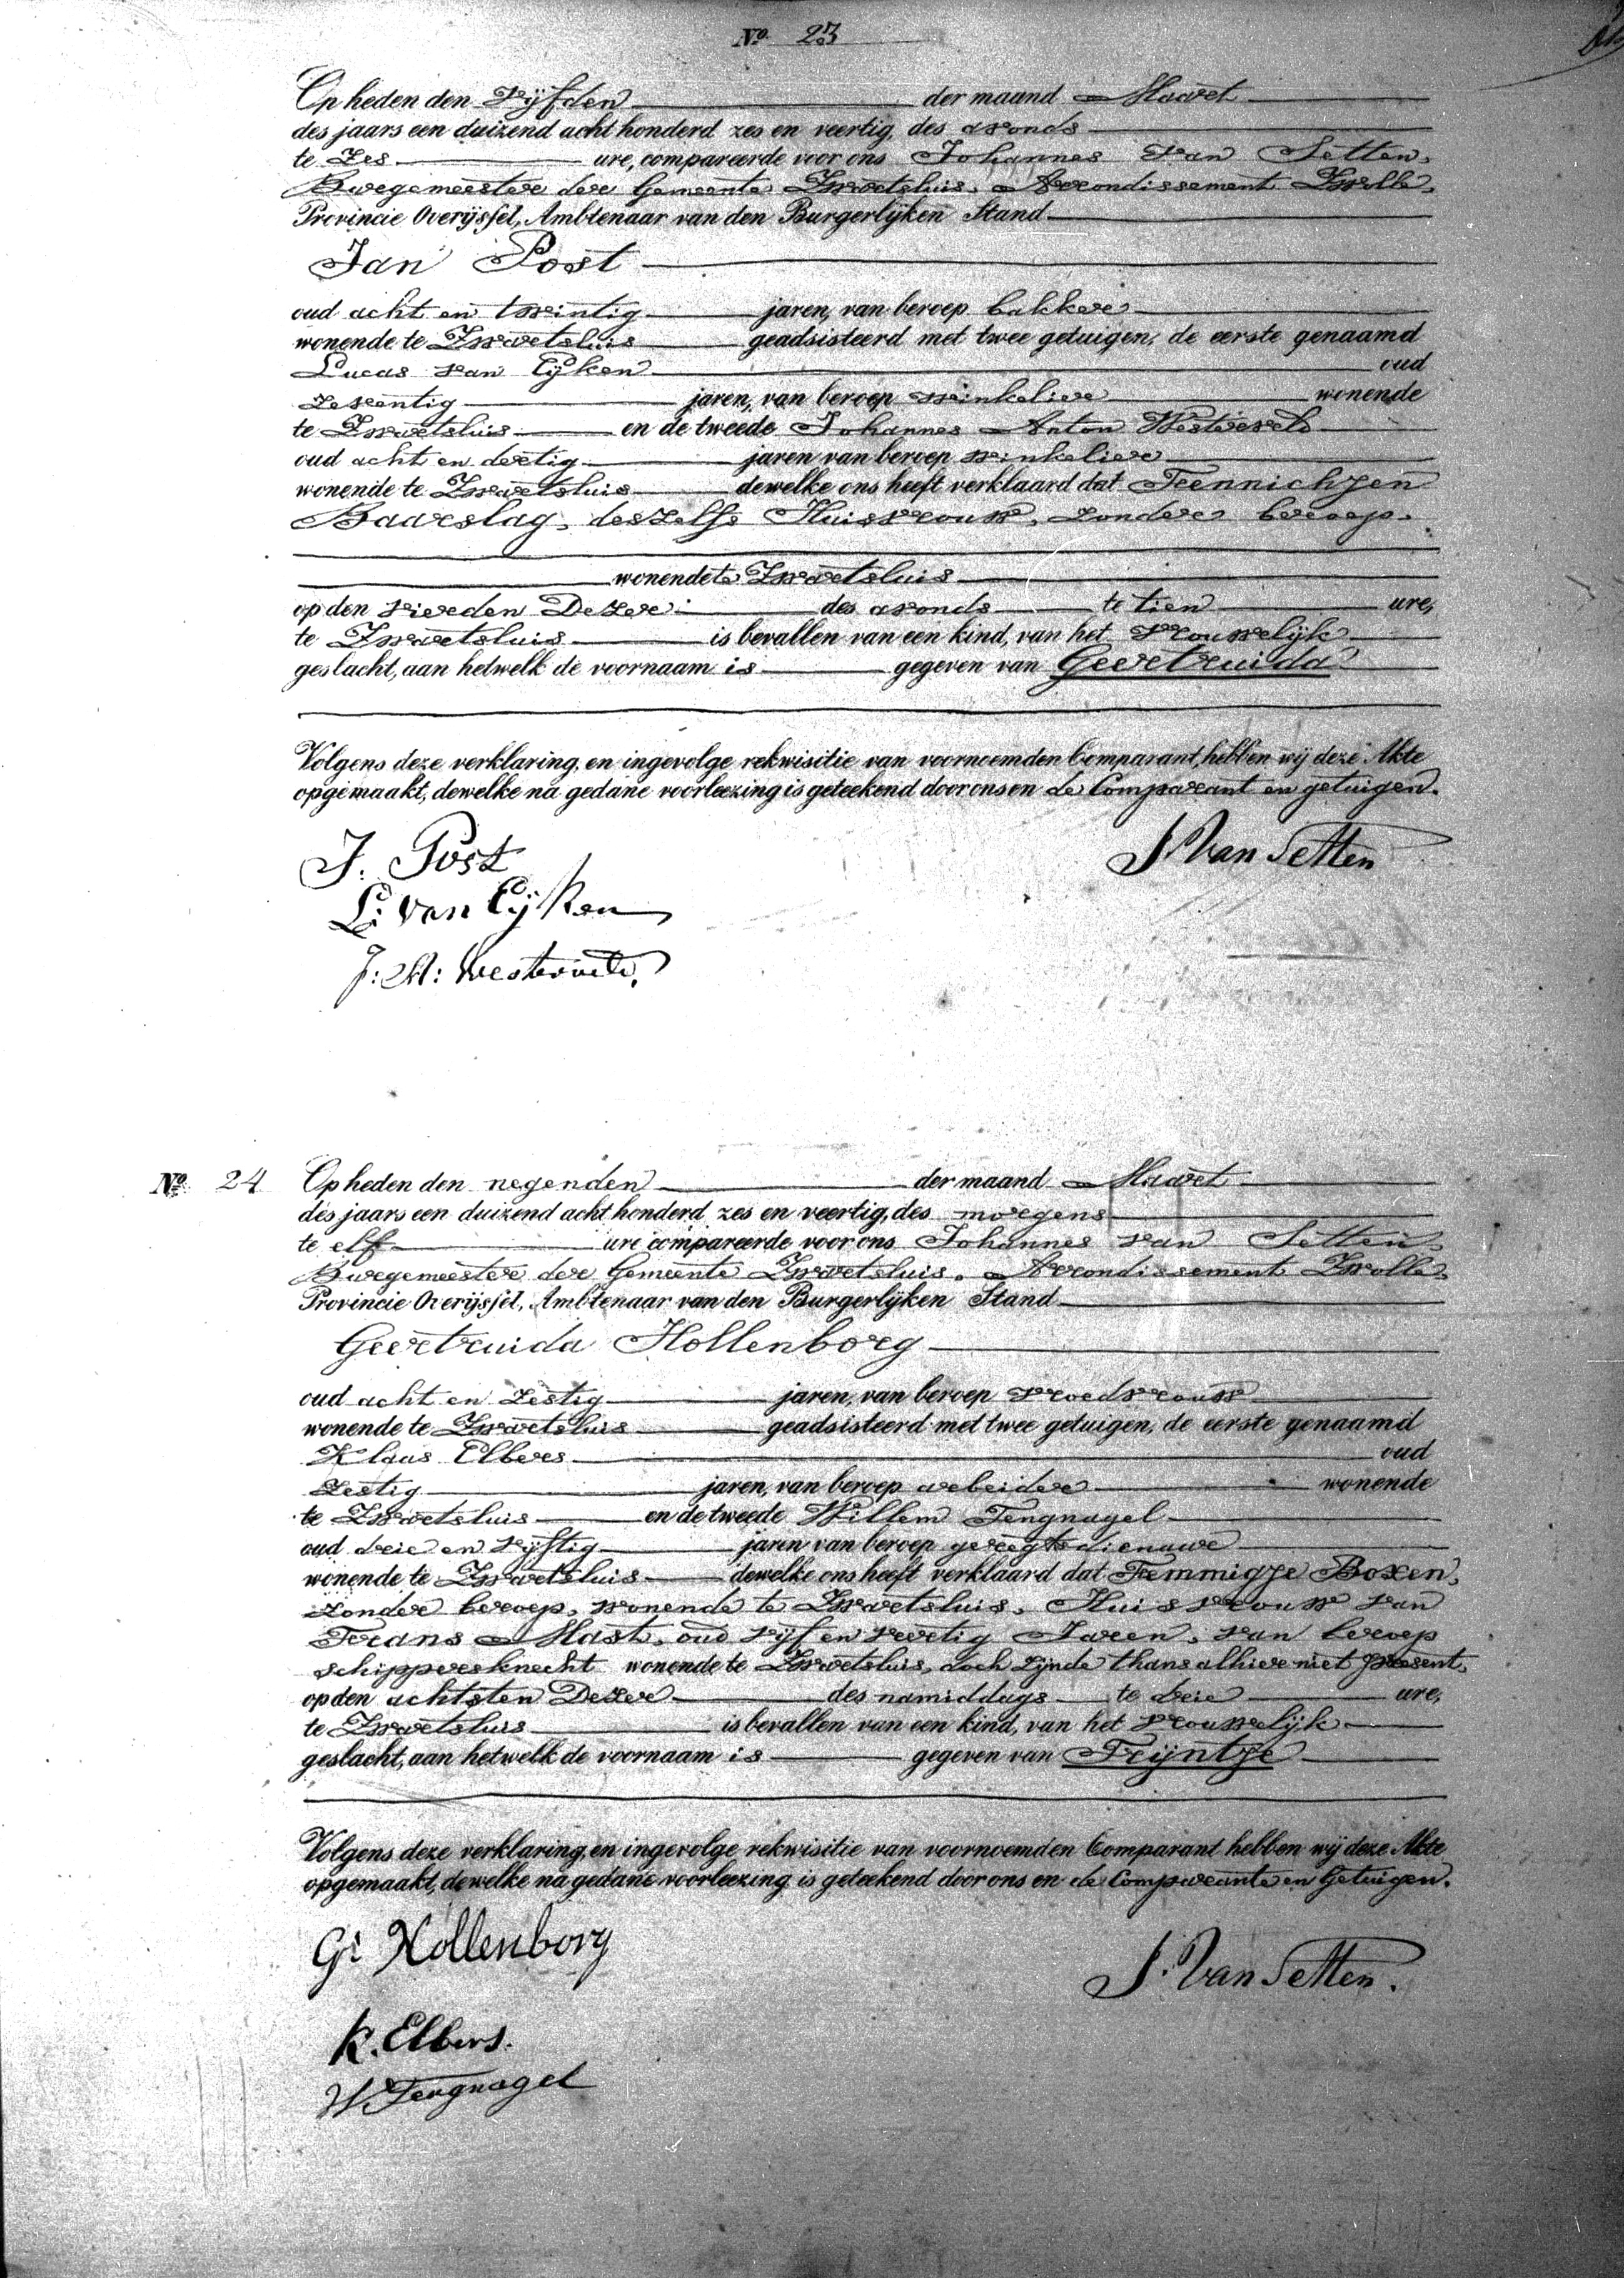 No. 23
Op heden den Vijfden der maand Maart
des jaars een duizend acht honderd zes en veertig, des avonds
te Zes ure, compareerde voor ons Johannes van Setten,
Burgemeester der Gemeente Zwartsluis, Arrondissement Zwolle,
Provincie Overijssel, Ambtenaar van den Burgerlijken Stand
Jan Post
oud acht en twintig jaren, van beroep bakker
wonende te Zwartsluis geadsisteerd met twee getuigen, de eerste genaamd
Lucas van Eijken oud
zeventig jaren, van beroep winkelier wonende
te Zwartsluis en de tweede Johannes Anton Westerveld
oud acht en dertig jaren van beroep winkelier
wonende te Zwartsluis dewelke ons heeft verklaard dat Fennichjen
Baarslag, deszelfs Huisvrouw, zonder beroep,
wonende te Zwartsluis
op den vierden Dezer des avonds te tien ure,
te Zwartsluis is bevallen van een kind, van het vrouwelijk
geslacht, aan hetwelk de voornaam is gegeven van Geertruida
Volgens deze verklaring, en ingevolge rekwisitie van voornoemden Comparant, hebben wij deze Akte
opgemaakt, dewelke na gedane voorleezing is geteekend door ons en de Comparant en getuigen.
J. Post
J. Van Setten
L. van Eijken
J: A: Westerveld.
No. 24
Op heden den negenden der maand Maart
des jaars een duizend acht honderd zes en veertig, des morgens
te elf ure compareerde voor ons Johannes van Setten,
Burgemeester der Gemeente Zwartsluis, Arrondissement Zwolle,
Provincie Overijssel, Ambtenaar van den Burgerlijken Stand
Geertruida Hollenborg
oud acht en zestig jaren, van beroep vroedvrouw
wonende te Zwartsluis geadsisteerd met twee getuigen, de eerste genaamd
Klaas Elbers oud
zestig jaren, van beroep arbeider wonende
te Zwartsluis en de tweede Willem Tengnagel
oud drie en vijftig jaren van beroep geregtsdienaar
wonende te Zwartsluis dewelke ons heeft verklaard dat Femmigje Boxen,
zonder beroep, wonende te Zwartsluis, Huisvrouw van
Frans Mast, oud vijf en veertig Jaren, van beroep
schippersknecht wonende te Zwartsluis, doch zijnde thans alhier niet present,
op den achtsten Dezer des namiddags te drie ure,
te Zwartsluis is bevallen van een kind, van het vrouwelijk
geslacht, aan hetwelk de voornaam is gegeven van Trijntje
Volgens deze verklaring, en ingevolge rekwisitie van voornoemden Comparant hebben wij deze Akte
opgemaakt, dewelke na gedane voorleezing is geteekend door ons en de Comparante en Getuigen.
G: Hollenborg
J. Van Setten.
K. Elbers.
W Tengnagel